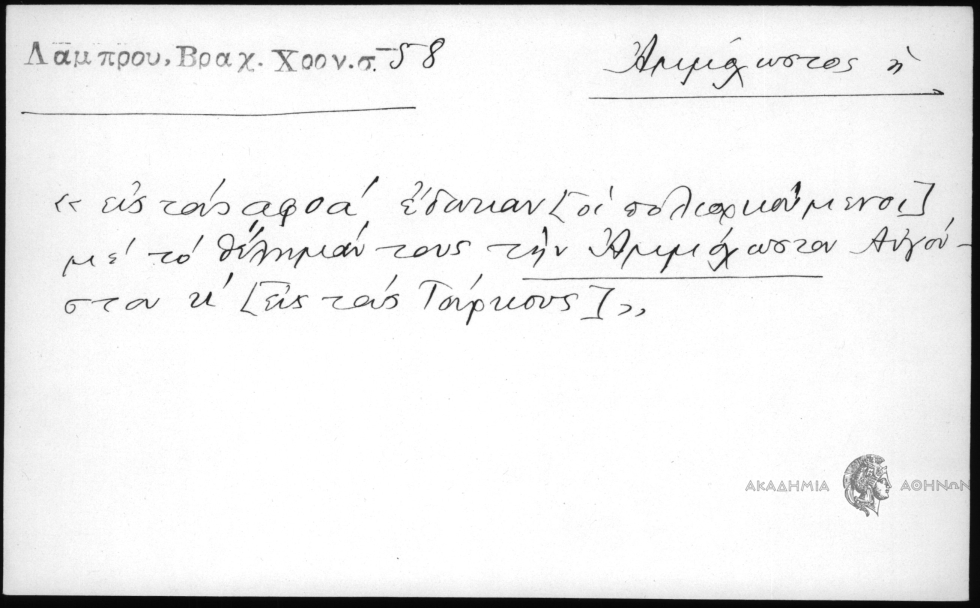 Λάμπρου, Βραχ. Χρον. σ. 58
Ἀμμόχωστος ἡ
«εἰς τὰς αφοα´ ἐδώκαν [οἱ πολιορκούμενοι]
μὲ τὸ θέλημάν τους τὴν Ἀμμόχωστον Αὐγού-
στου κ´ [εἰς τοὺς Τούρκους]»
ΑΚΑΔΗΜΙΑ ΑΘΗΝΩΝ